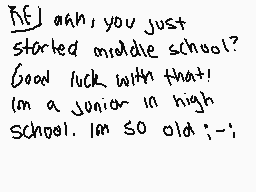 RE] ahh, you just
started middle school?
Good luck with that!
Im a junior in high
school. Im so old ;-;